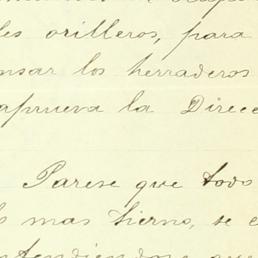 les orilleros, para
nsar los herraderos
aprueva la Direcc
Parese que todo
mas tierno, se e
ntendiendose que